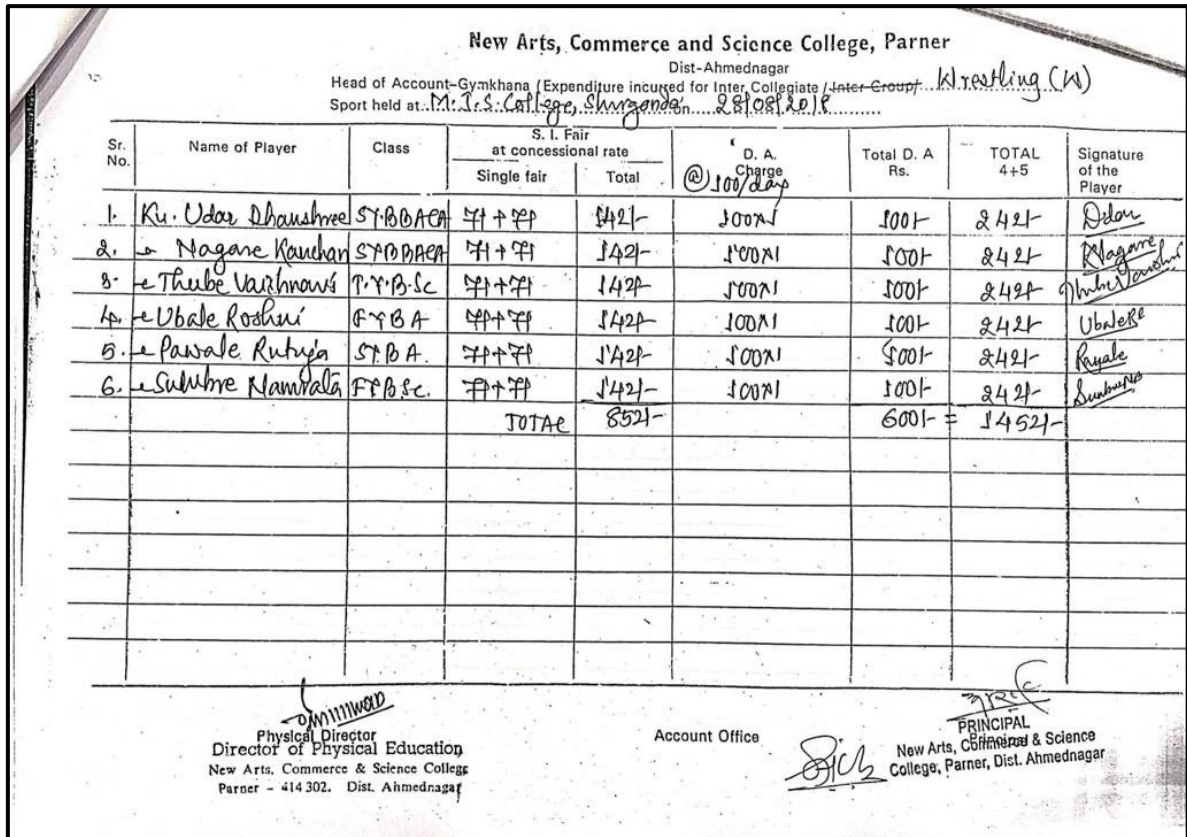 New Arts, Commerce and Science College, Parner
Dist-Ahmednagar
Head of Account-Gymkhana / Expenditure incured for Inter Collegiate / Inter Group/ Wrestling (W)
Sport held at M.J.S. College, Shrigonda on 28/08/2018
Sr. No. Name of Player Class S. I. Fair at concessional rate Single fair Total D. A. Charge @ 100/day Total D. A Rs. TOTAL 4+5 Signature of the Player
1. Ku. Udar Dhanshree S.Y.BBACA 71+71 142/- 100x1 100/- 242/- Udar
2. Nagare Kanchan SYBBACA 71+71 142/- 100x1 100/- 242/- Nagare
3. Thube Vaishnavi T.Y.B.Sc 71+71 142/- 100x1 100/- 242/-
4. Ubale Roshni FYBA 71+71 142/- 100x1 100/- 242/- UbaleRR
5. Pawale Rutuja SY.B.A. 71+71 142/- 100x1 100/- 242/-
6. Namrata FYBSc. 71+71 142/- 100x1 100/- 242/-
TOTAL 852/- 600/- = 1452/-
Physical Director
Director of Physical Education
New Arts, Commerce & Science College
Parner - 414 302. Dist. Ahmednagar
Account Office
PRINCIPAL
Principal
New Arts, Commerce & Science
College, Parner, Dist. Ahmednagar